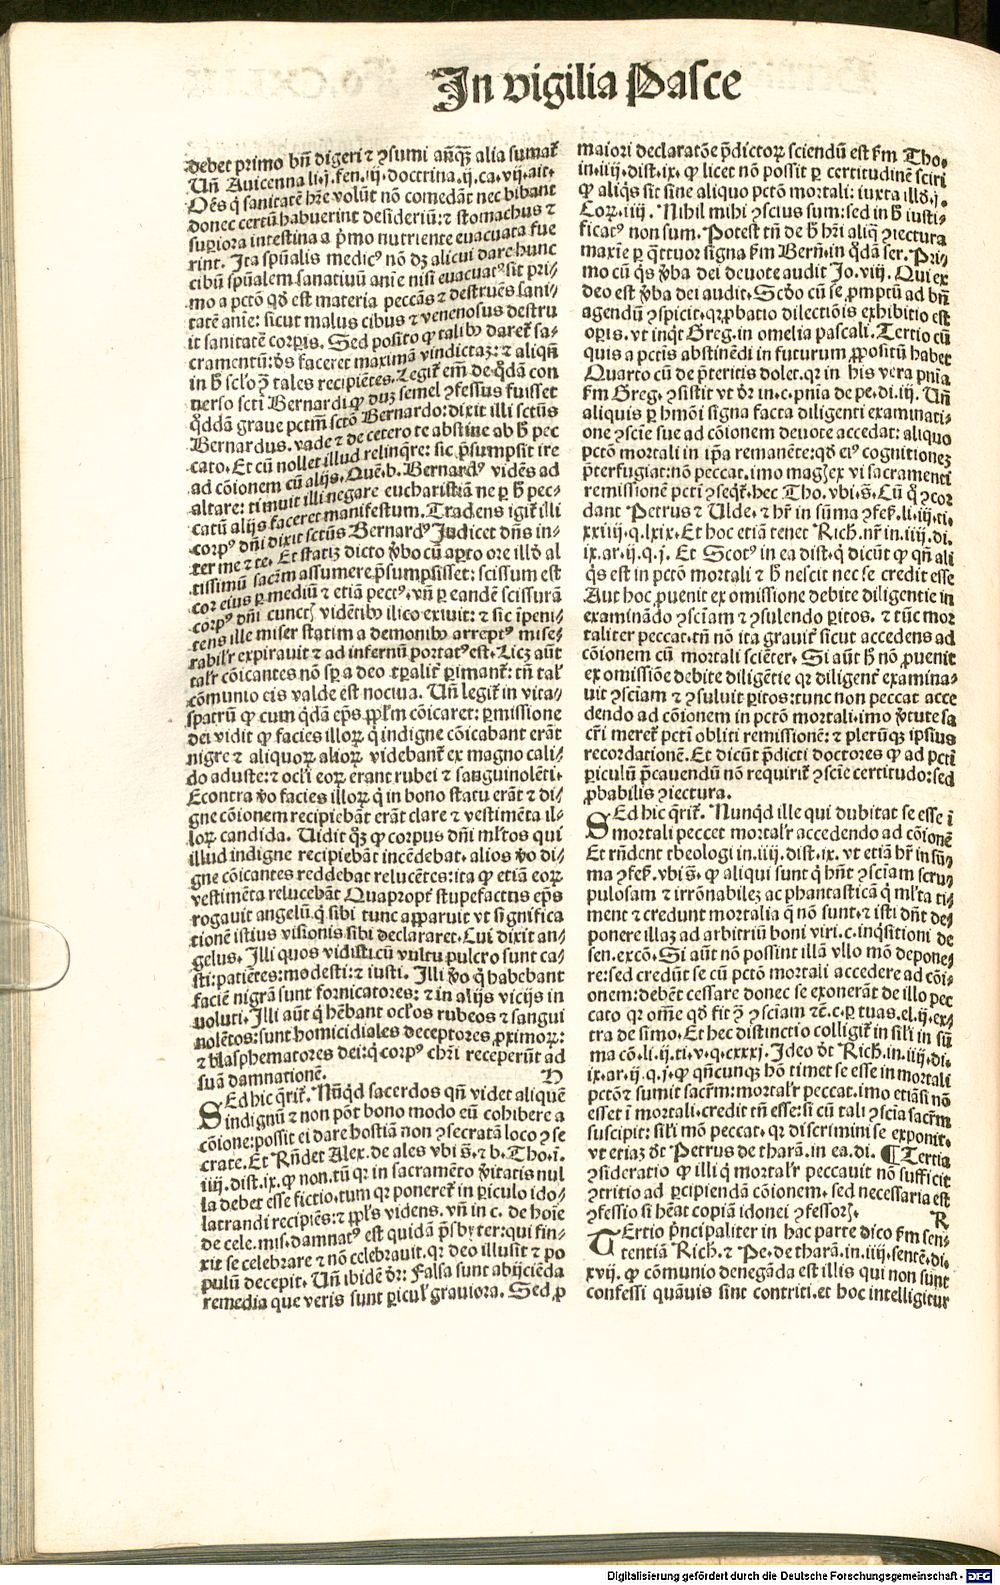 In vigilia Pasce
debet primo bñ digeri ⁊ ꝯsumi añqȝ alia sumat̃
Uñ Avicenna li.j.fen.iij.doctrina.ij.ca.vij.ait.
Oẽs q̇ sanitatẽ hr̃e volũt nõ comedãt nec bibant
donec certũ habuerint desideriũ: ⁊ stomachus ⁊
suꝑiora intestina a p̃mo nutriente evacuata fue
rint. Ita spũalis medicꝰ nõ dȝ alicui dare hunc
cibũ spũalem sanativũ anĩe nisi evacuatꝰ sit pri⸗
mo a pctõ qd̃ est materia peccãs ⁊ destruẽs sani⸗
tatẽ anĩe: sicut malus cibus ⁊ venenosus destru
it sanitatẽ corꝑis. Sed posito ꝙ talibꝰ daret̃ sa⸗
cramentũ: dñs faceret maximã vindictaȝ: ⁊ aliqñ
in h̃ sclo ꝯ̃ tales recipiẽtes. Legit̃ em̃ de q̇dã con
verso scti Bernardi ꝙ duȝ semel ꝯfessus fuisset
q̇ddã grave pctm̃ sctõ Bernardo: dixit illi sctus
Bernardus. vade ⁊ de cetero te abstine ab h̃ pec
cato. Et cũ nollet illud relinq̃re: sic p̃sumpsit ire
ad cõionem cũ alijs. Quẽ.b. Bernardꝰ vidẽs ad
altare: timuit illi negare eucharistiã ne ꝑ h̃ pec⸗
catũ alijs faceret manifestum. Tradens igit̃ illi
corpꝰ dñi dixit sctus Bernardꝰ Judicet dñs in⸗
ter me ⁊ te. Et statiȝ dicto ṽbo cũ aꝑto ore illd̃ al
tissimũ sacr̃m assumere p̃sumpsisset: scissum est
cor eius ꝑ mediũ ⁊ etiã pectꝰ. vñ ꝑ eandẽ scissurã
corpꝰ dñi cunctꝭ videtibꝰ ilico exivit: ⁊ sic ĩpeni⸗
tens ille miser statim a demonibꝰ arreptꝰ mise⸗
rabilr̃ expiravit ⁊ ad infernũ portatꝰ est. Licȝ aũt
talr̃ cõicantes nõ sꝑ a deo tꝑalit̃ ꝑimant̃: tñ tal̃
cõmunio eis valde est nociva. Uñ legit̃ in vita⸗
spatrũ ꝙ cum q̇dã ep̃s pp̃lm cõicaret: ꝑmissione
dei vidit ꝙ facies illoꝝ q̇ indigne cõicabant erãt
nigre ⁊ aliquoꝝ alioꝝ videbant̃ ex magno cali⸗
do aduste: ⁊ ocli eoꝝ erant rubei ⁊ sanguinolẽti.
Econtra ṽo facies illoꝝ q̇ in bono statu erãt ⁊ di⸗
gne cõionem recipiebãt erãt clare ⁊ vestimẽta il⸗
loꝝ candida. Uidit qȝ ꝙ corpus dñi ml̃tos qui
illud indigne recipiebãt incẽdebat. alios ṽo di⸗
gne cõicantes reddebat relucẽtes: ita ꝙ etiã eoꝝ
vestimẽta relucebãt Quapropt̃ stupefactus ep̃s
rogavit angelũ q̇ sibi tunc apparuit vt significa
tionẽ istius visionis sibi declararet. Cui dixit an⸗
gelus. Illi quos vidisti cũ vultu pulcro sunt ca⸗
sti: patiẽtes: modesti: ⁊ iusti. Illi ṽo q̇ habebant
faciẽ nigrã sunt fornicatores: ⁊ in alijs vicijs in
voluti. Illi aũt q̇ hẽbant ocl̃os rubeos ⁊ sangui
nolẽtos: sunt homicidiales deceptores ꝓximoꝝ:
⁊ blasphematores dei: q̇ corpꝰ chr̃i receperũt ad
suã damnationẽ.
Sed hic q̃rit̃. Nũqd̃ sacerdos qñ videt aliquẽ
indignũ ⁊ non põt bono modo eũ cohibere a
cõione: possit ei dare hostiã non ꝯsecratã loco ꝯse
crate. Et Rñdet Alex. de ales vbi s̃. ⁊ b. Tho. ĩ.
iiij. dist. ix. ꝙ non. tũ qr in sacramẽto ṽitatis nul
la debet esse fictio. tum qr poneret̃ in ꝑiculo ido⸗
latrandi recipiẽs: ⁊ ppl̃s videns. vñ in c. de hoie
de cele. mis. damnatꝰ est quidã p̃sbyter: qui fin⸗
xit se celebrare ⁊ nõ celebravit. qr deo illusit ⁊ po
pulũ decepit. Uñ ibidẽ dr̃: Falsa sunt abijciẽda
remedia que veris sunt ꝑicul̃ graviora. Sed ꝓ
maiori declaratõe p̃dictoꝝ sciendũ est s̃m Tho.
in.iiij.dist.ix. ꝙ licet nõ possit ꝑ certitudinẽ sciri
ꝙ aliq̇s sit sine aliquo pctõ mortali: iuxta illd̃.j.
Coꝝ.iiij. Nihil mihi ꝯscius sum: sed in h̃ iusti⸗
ficatꝰ non sum. Potest tñ de h̃ hr̃i aliq̃ ꝯiectura
maxĩe ꝑ q̃ttuor signa s̃m Berñ. in q̇dã ser. Pri⸗
mo cũ q̇s ṽba dei devote audit Jo. viij. Qui ex
deo est ṽba dei audit. Scd̃o cũ se ꝓmptũ ad bñ
agendũ ꝯspicit. qr ꝓbatio dilectiõis exhibitio est
oꝑis. vt inqt̃ Greg. in omelia pascali. Tertio cũ
quis a pctis abstinẽdi in futurum ꝓpositũ habet
Quarto cũ de p̃teritis dolet. qr in his vera pnĩa
s̃m Greg. ꝯsistit vt dr̃ in.c.pnĩa de pe. di. iij. Uñ
aliquis ꝑ hmõi signa facta diligenti examinati⸗
one ꝯscĩe sue ad cõionem devote accedat: aliquo
pctõ mortali in ip̃a remanẽte: qd̃ eiꝰ cognitioneȝ
p̃terfugiat: non peccat. imo magꝭ ex vi sacramenti
remissionẽ pcti ꝯseqt̃. hec Tho. vbi. s̃. Cũ q̇ ꝯcor
dant Petrus ⁊ Ulde. ⁊ hr̃ in sũma ꝯfes̃. li. iij. ti.
xxiiij. q. lxix. Et hoc etiã tenet Rich. nr̃ in. iiij. di.
ix. ar. ij. q. j. Et Scotꝰ in ea dist. q̇ dicũt ꝙ qñ ali
q̇s est in pctõ mortali ⁊ h̃ nescit nec se credit esse
Aut hoc ꝓuenit ex omissione debite diligentie in
examinãdo ꝯsciam ⁊ ꝯsulendo ꝑitos. ⁊ tũc mor
taliter peccat. tñ nõ ita gravit̃ sicut accedens ad
cõionem cũ mortali sciẽter. Si aũt h̃ nõ ꝓuenit
ex omissiõe debite diligẽtie qr diligent̃ examina⸗
vit ꝯsciam ⁊ ꝯsuluit ꝑitos: tunc non peccat acce
dendo ad cõionem in pctõ mortali. imo ṽtute sa
cr̃i meret̃ pcti obliti remissionẽ: ⁊ plerũqȝ ipsius
recordationẽ. Et dicũt p̃dicti doctores ꝙ ad pcti
ꝑiculũ p̃cavendũ nõ requirit̃ ꝯscĩe certitudo: sed
ꝓbabilis ꝯiectura.
Sed hic q̃rit̃. Nunqd̃ ille qui dubitat se esse ĩ
mortali peccet mortalr̃ accedendo ad cõionẽ
Et rñdent theologi in.iiij. dist. ix. vt etiã hr̃ in sũ⸗
ma ꝯfes̃. vbi s̃. ꝙ aliqui sunt q̇ hñt ꝯsciam scru⸗
pulosam ⁊ irrõnabileȝ ac phantasticã q̇ ml̃ta ti⸗
ment ⁊ credunt mortalia q̃ nõ sunt. ⁊ isti dñt de⸗
ponere illaȝ ad arbitriũ boni viri. c. inq̇sitioni de
sen. excõ. Si aũt nõ possint illã vllo mõ depone⸗
re: sed credũt se cũ pctõ mortali accedere ad cõi⸗
onem: debẽt cessare donec se exonerãt de illo pec
cato qr om̃e qd̃ fit ꝯ̃ ꝯsciam ⁊c̃. c. ꝑ tuas. el. ij. ex⸗
tra de simo. Et hec distinctio colligit̃ in sil̃i in sũ
ma cõ. li. ij. ti. v. q. cxxxj. Ideo dt̃ Rich. in. iiij. di.
ix. ar. ij. q. j. ꝙ qñcunqȝ hõ timet se esse in mortali
pctõ ⁊ sumit sacr̃m: mortalr̃ peccat. imo etiãsi nõ
esset ĩ mortali. credit tñ esse: si cũ tali ꝯscĩa sacr̃m
suscipit: sil̃i mõ peccat. qr discrimini se exponit.
vt etiaȝ dt̃ Petrus de tharã. in ea. di. ¶ Tertia
ꝯsideratio ꝙ illi q̇ mortalr̃ peccavit nõ sufficit
ꝯtritio ad ꝑcipiendã cõionem. sed necessaria est
ꝯfessio si hẽat copiã idonei ꝯfessorꝭ. R
Tertio p̃ncipaliter in hac parte dico s̃m sen⸗
tentiã Rich. ⁊ Pe. de tharã. in. iiij. sentẽ. di.
xvij. ꝙ cõmunio denegãda est illis qui non sunt
confessi quãuis sint contriti. et hoc intelligitur
Digitalisierung gefördert durch die Deutsche Forschungsgemeinschaft - DFG